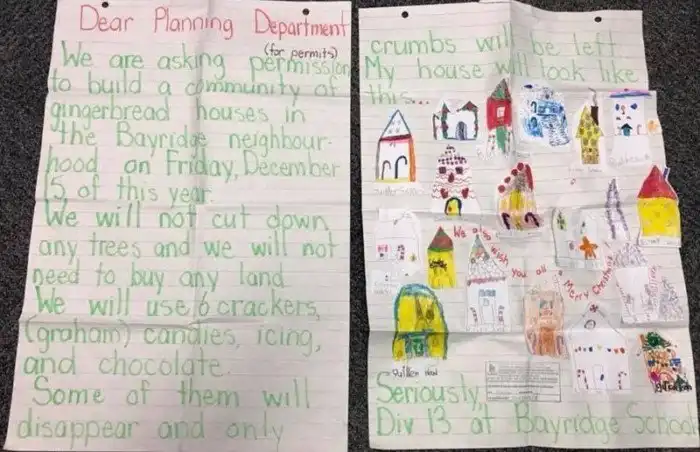 Dear Planning Department
(for permits)
We are asking permission
to build a community of
gingerbread houses in
the Bayridge neighbour-
hood on Friday, December
15 of this year.
We will not cut down
any trees and we will not
need to buy any land
We will use 6 crackers,
(graham) candies, icing,
and chocolate.
Some of them will
disappear and only
crumbs will be left
My house will look like
this...
We also wish
you all
a
Merry Christmas
Seriously,
Div 13 at Bayridge School